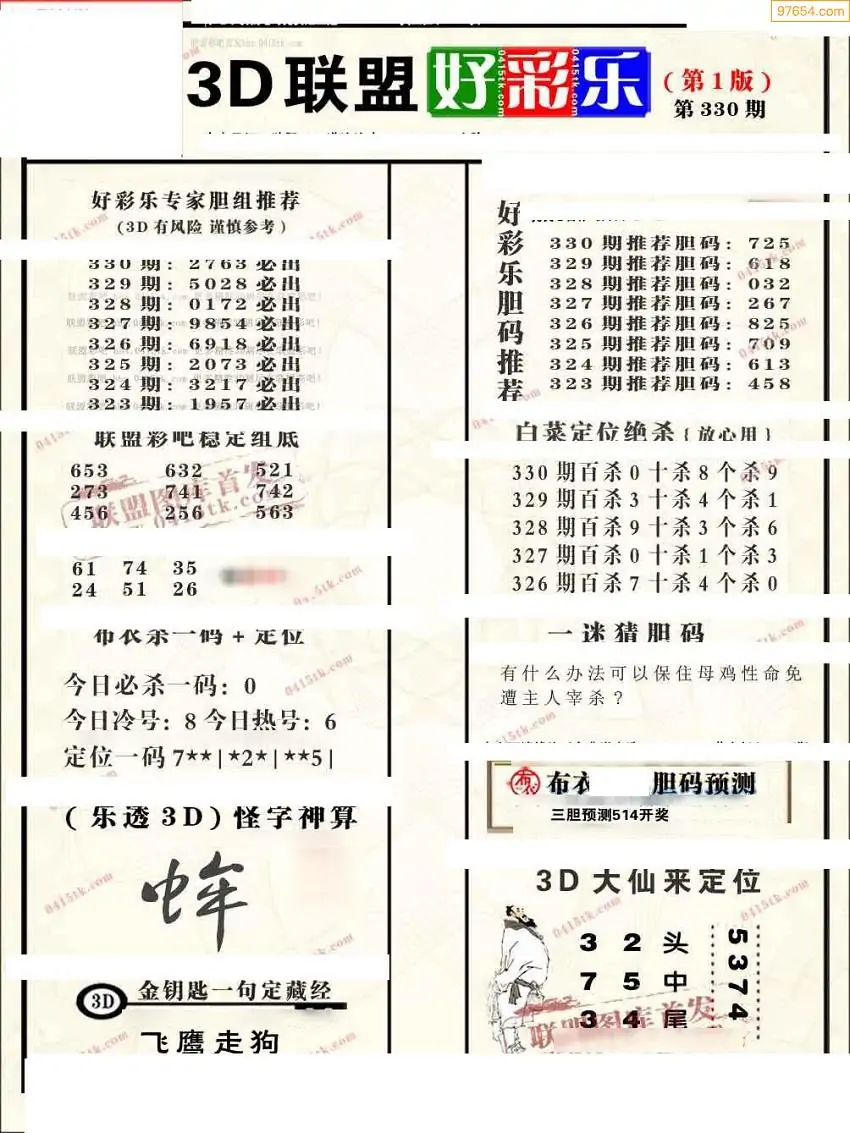 97654.com
3D联盟好彩乐(第1版)
第330期
好彩乐专家胆组推荐
(3D有风险 谨慎参考)
330期:2763必出
329期:5028必出
328期:0172必出
327期:9854必出
326期:6918必出
325期:2073必出
324期:3217必出
323期:1957必出
联盟彩吧稳定组底
653 632 521
273 741 742
456 256 563
联盟图库首发
0415tk.com
61 74 35
24 51 26
布衣杀一码+定位
今日必杀一码:0
今日冷号:8 今日热号:6
定位一码7**|*2*|**5|
(乐透3D)怪字神算
3D 金钥匙一句定藏经
飞鹰走狗
好彩乐胆码推荐
330期推荐胆码:725
329期推荐胆码:618
328期推荐胆码:032
327期推荐胆码:267
326期推荐胆码:825
325期推荐胆码:709
324期推荐胆码:613
323期推荐胆码:458
白菜定位绝杀{放心用}
330期百杀0十杀8个杀9
329期百杀3十杀4个杀1
328期百杀9十杀3个杀6
327期百杀0十杀1个杀3
326期百杀7十杀4个杀0
一迷猜胆码
有什么办法可以保住母鸡性命免
遭主人宰杀?
布衣 胆码预测
三胆预测514开奖
3D大仙来定位
3 2 头
7 5 中
3 4 尾
5374
联盟图库首发